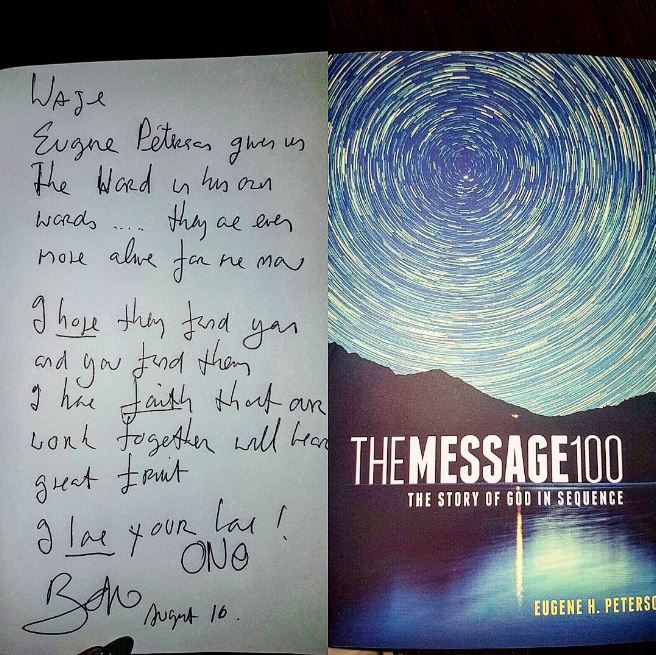 Waje
Eugene Peterson gives us
The Word in his own
words .... they are even
more alive for me now
I hope they find you
and you find them
I have faith that our
work together will bear
great fruit
I love your love !
ONE
Bono
August 16.
THEMESSAGE100
THE STORY OF GOD IN SEQUENCE
EUGENE H. PETERSO